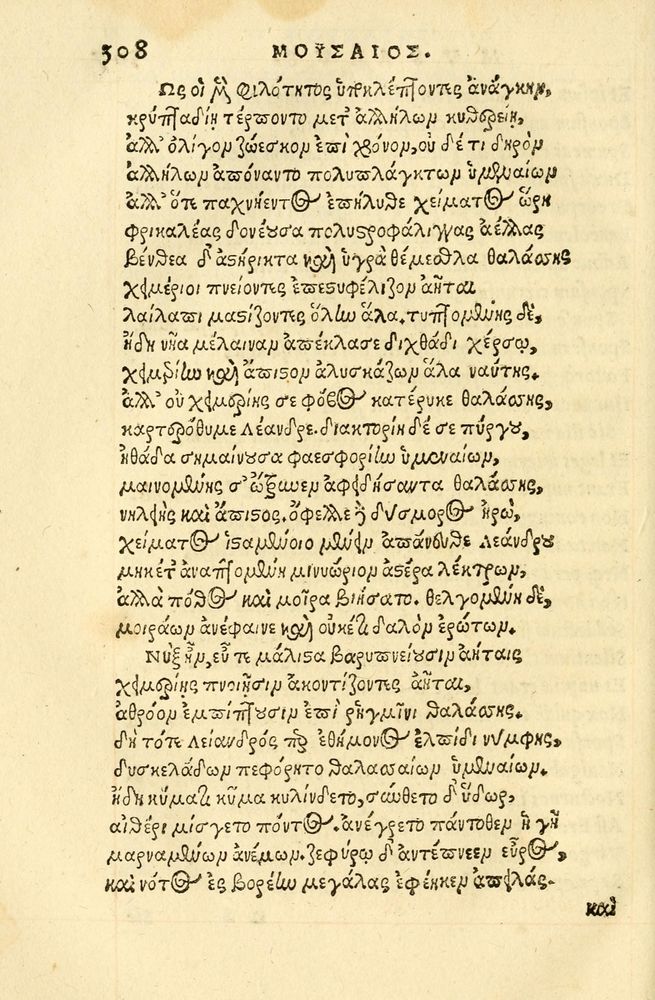 308 ΜΟΥΣΑΙΟΣ.
Ως οἱ μὲν φιλότητος ὑποκλέπτοντες ἀνάγκην,
κρυπταδίῃ τέρποντο μετ' ἀλλήλων κυθερείῃ,
ἀλλ' ὀλίγον ζώεσκον ἐπὶ χρόνον, οὐ δ' ἔτι δηρὸν
ἀλλήλων ἀπόναντο πολυπλάγκτων ὑμεναίων
ἀλλ' ὅτε παχνήεντος ἐπήλυθε χείματος ὥρη
φρικαλέας δονέουσα πολυστροφάλιγγας ἀέλλας
βένθεα δ' ἀστήρικτα καὶ ὑγρὰ θέμεθλα θαλάσσης
χειμέριοι πνείοντες ἐπεστυφέλιζον ἀῆται
λαίλαπι μαστίζοντες ὅλην ἅλα. τυπτομένης δὲ,
ἤδη νῆα μέλαιναν ἀπέκλασε διχθάδι χέρσῳ,
χειμερίην καὶ ἄπιστον ἀλυσκάζων ἅλα ναύτης.
ἀλλ' οὐ χειμερίης σε φόβος κατέρυκε θαλάσσης,
καρτερόθυμε Λέανδρε. διακτορίη δέ σε πύργου,
ἠθάδα σημαίνουσα φαεσφορίην ὑμεναίων,
μαινομένης σ' ὤτρυνεν ἀφειδήσαντα θαλάσσης,
νηλειὴς καὶ ἄπιστος. ὄφελλε δὲ δύσμορος ἡρὼ,
χείματος ἱσταμένοιο μένειν ἀπάνευθε Λεάνδρου
μηκέτ' ἀναπτομένη μινυώριον ἀστέρα λέκτρων,
ἀλλὰ πόθος καὶ μοῖρα βιήσατο. θελγομένη δὲ,
μοιράων ἀνέφαινε καὶ οὐκέτι δαλὸν ἐρώτων.
Νὺξ ἦν, εὖτε μάλιστα βαρυπνείουσιν ἀήταις
χειμερίης πνοιῇσιν ἀκοντίζοντες ἀῆται,
ἀθρόον ἐμπίπτουσιν ἐπὶ ῥηγμῖνι θαλάσσης.
δὴ τότε Λείανδρός περ ἐθήμονος ἐλπίδι νύμφης,
δυσκελάδων πεφόρητο θαλασσαίων ὑμεναίων.
ἤδη κύματι κῦμα κυλίνδετο, σύνθετο δ' ὕδωρ,
αἰθέρι μίσγετο πόντος. ἀνέγρετο πάντοθεν ἠχὴ
μαρναμένων ἀνέμων. ζεφύρῳ δ' ἀντέπνεεν εὖρος,
καὶ νότος ἐς βορέην μεγάλας ἐφέηκεν ἀπειλάς.
καὶ